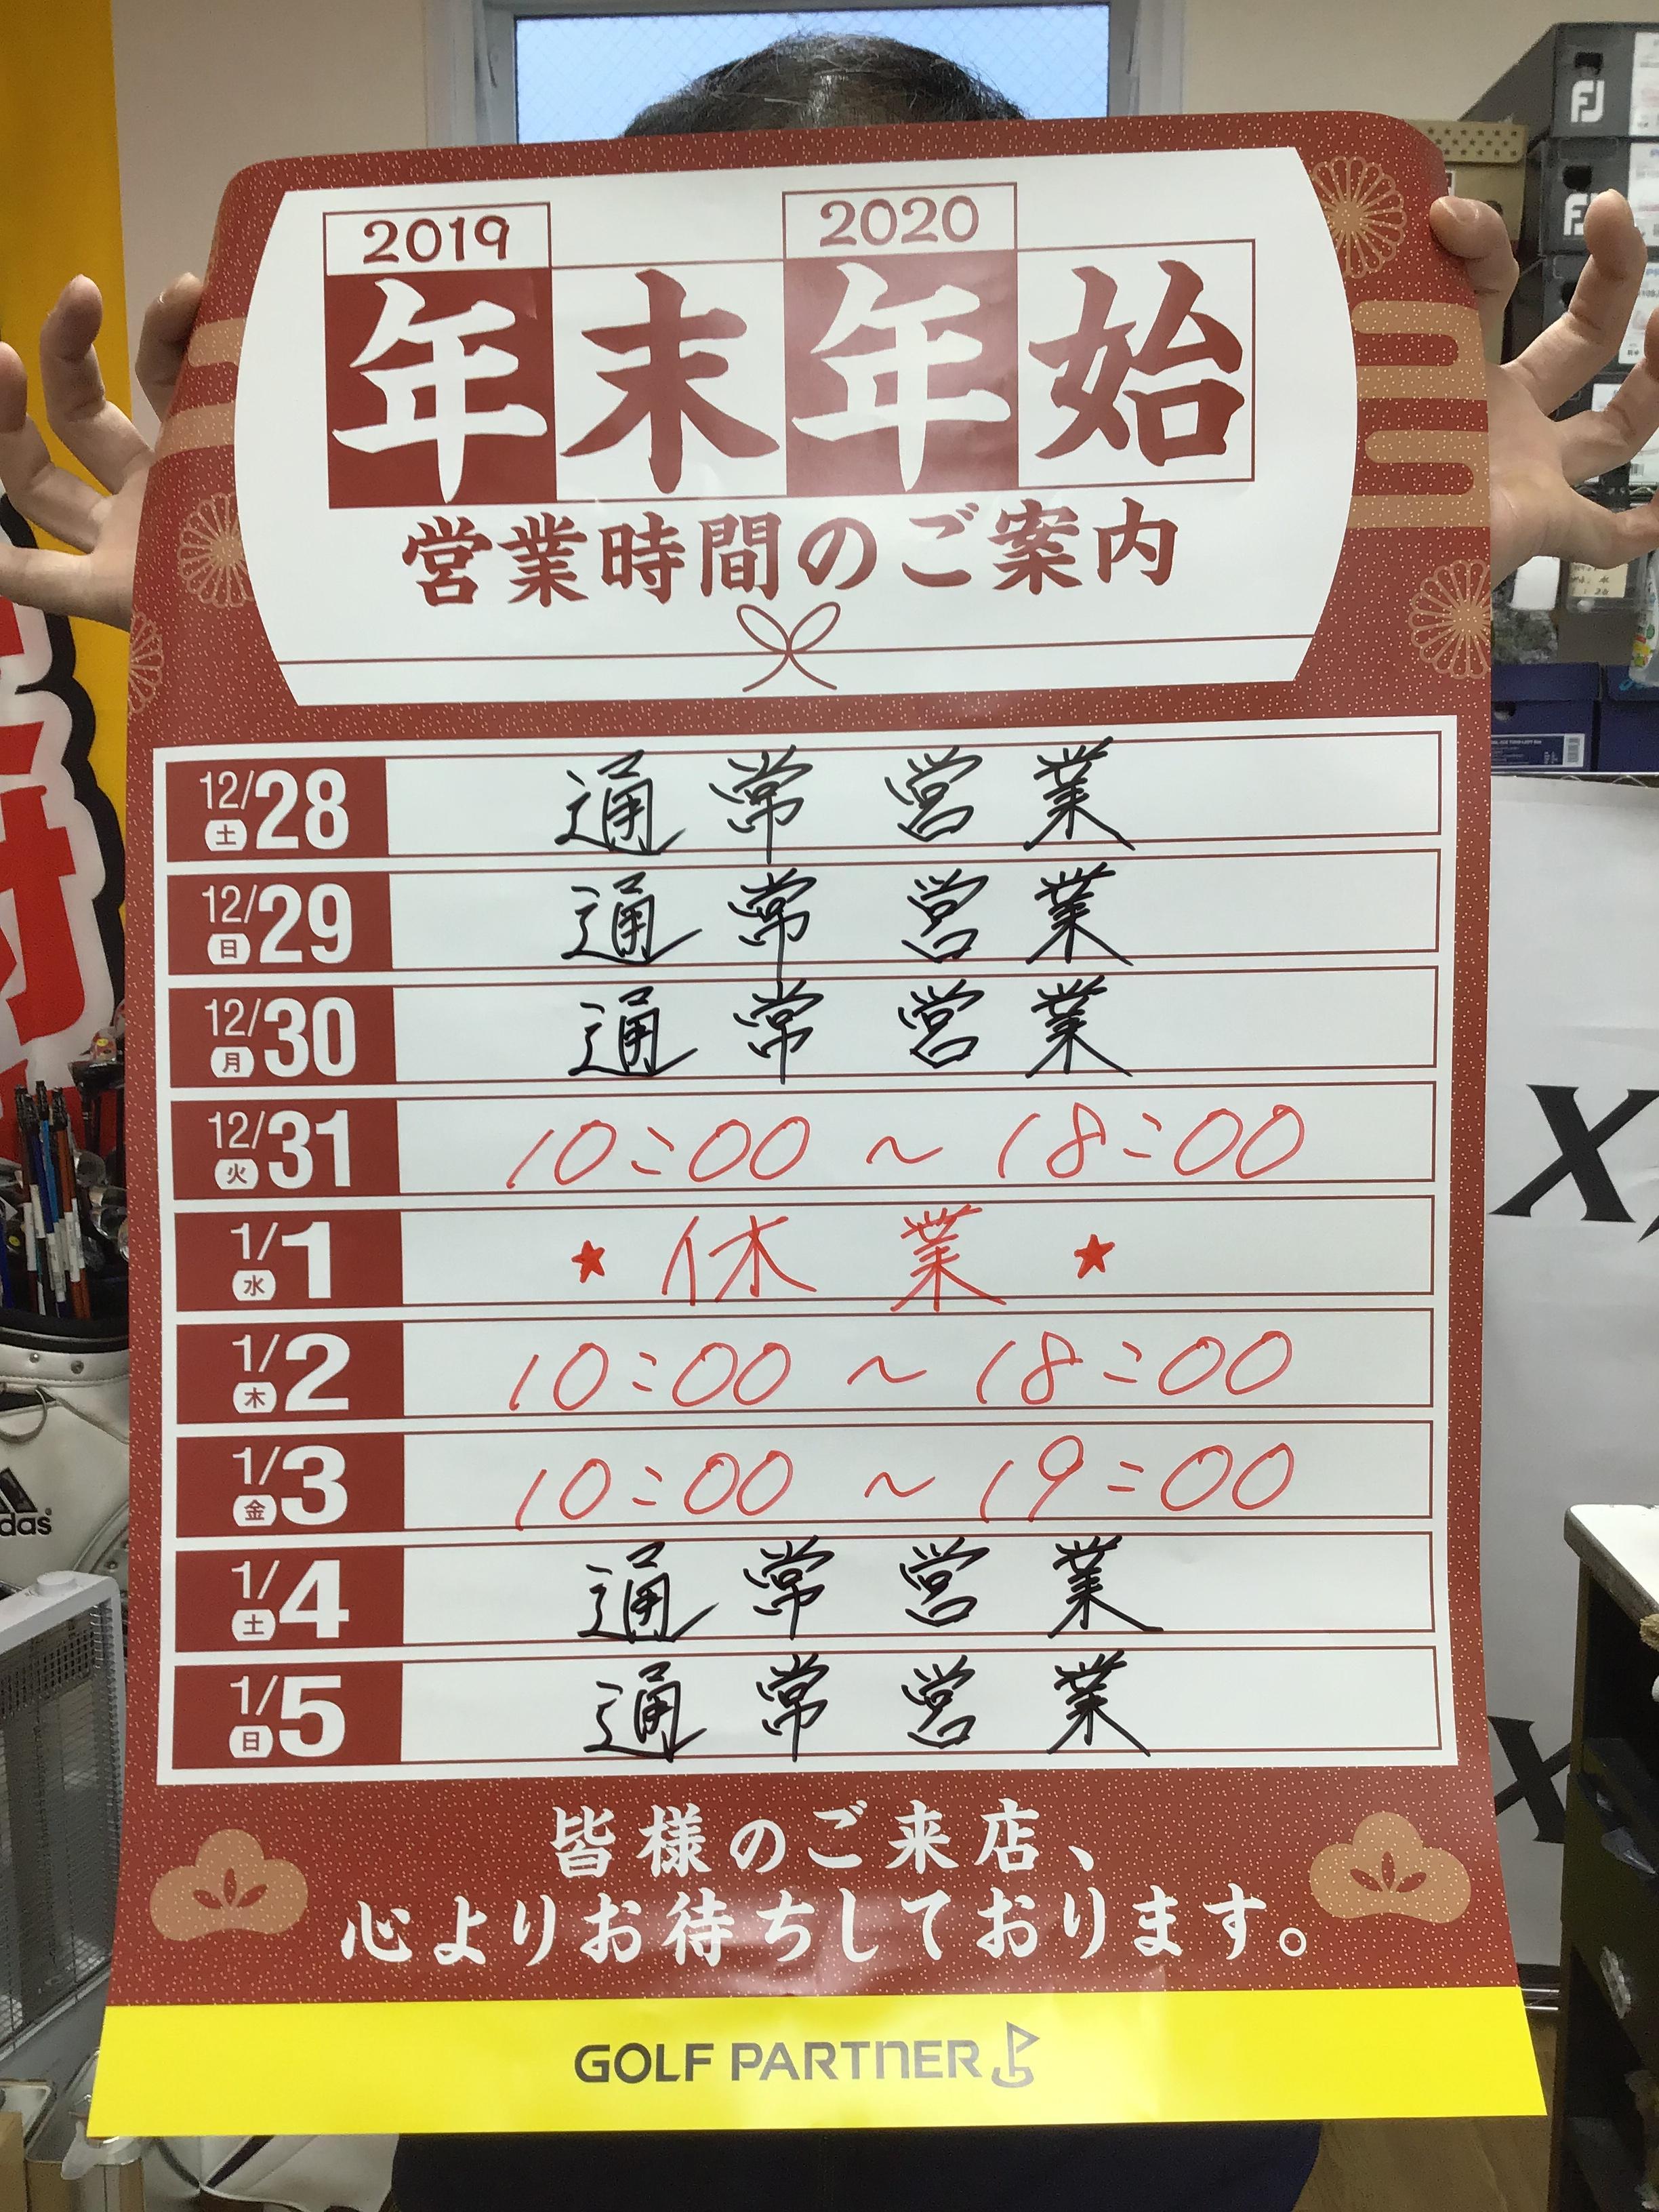 2019 2020
年末年始
営業時間のご案内
12/28 土 通常営業
12/29 日 通常営業
12/30 月 通常営業
12/31 火 10:00 ~ 18:00
1/1 水 ★ 休業 ★
1/2 木 10:00 ~ 18:00
1/3 金 10:00 ~ 19:00
1/4 土 通常営業
1/5 日 通常営業
皆様のご来店、
心よりお待ちしております。
GOLF PARTNER
FJ
FJ
das
X
X